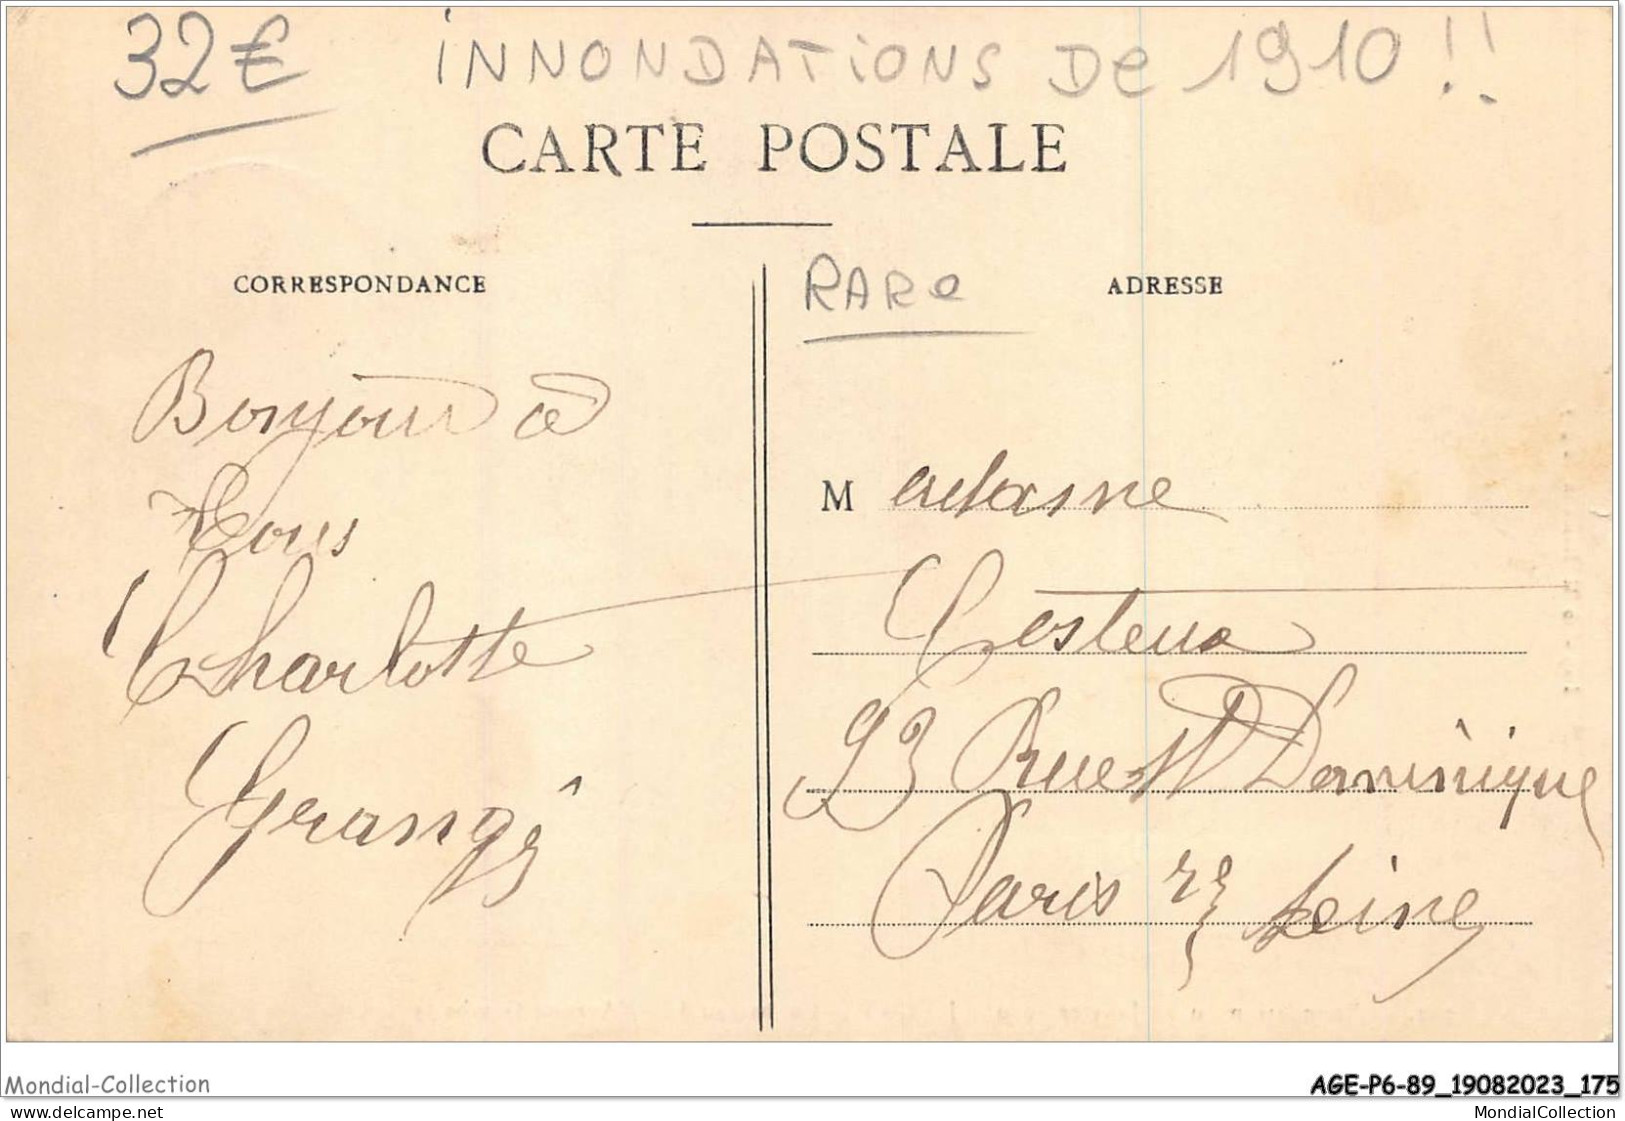 32€ iNNONDATiONS De 1910!!
CARTE POSTALE
CORRESPONDANCE
RARe
ADRESSE
Bonjour à
tous
Charlotte
Madame
93 Rue St Dominique
Paris Seine
Mondial-Collection
AGE-P6-89_19082023_175
www.delcampe.net
MondialCollection